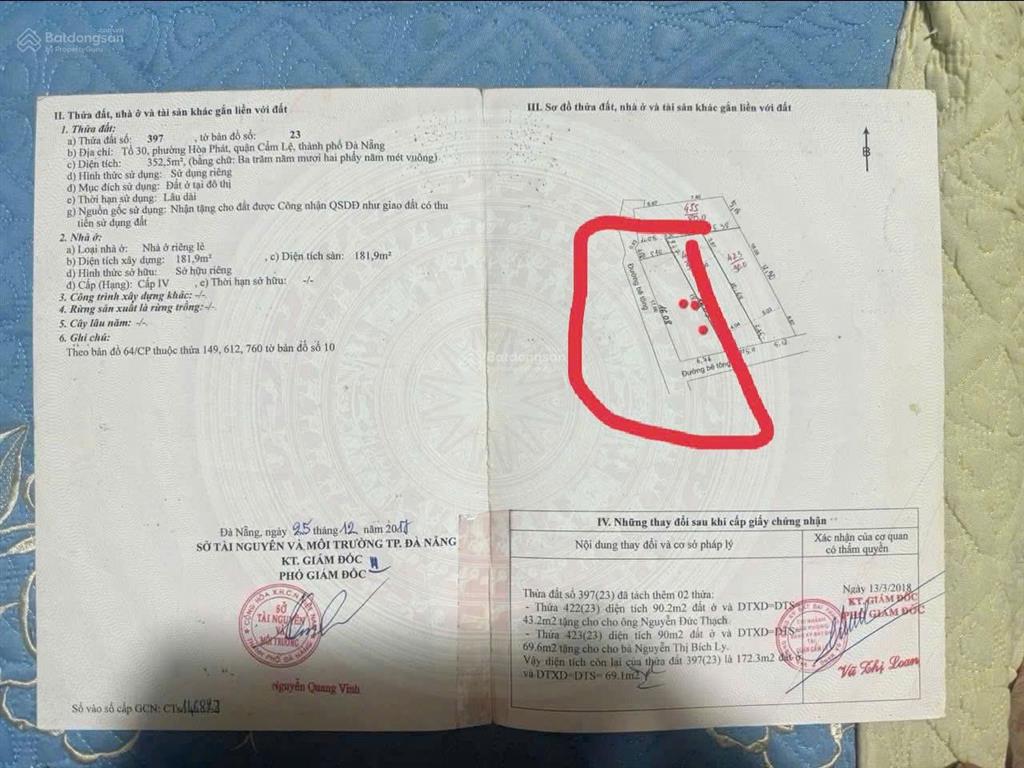 Batdongsan
by PropertyGuru
II. Thửa đất, nhà ở và tài sản khác gắn liền với đất
1. Thửa đất:
a) Thửa đất số: 397 , tờ bản đồ số: 23
b) Địa chỉ: Tổ 30, phường Hòa Phát, quận Cẩm Lệ, thành phố Đà Nẵng
c) Diện tích: 352,5m², (bằng chữ: Ba trăm năm mươi hai phẩy năm mét vuông)
d) Hình thức sử dụng: Sử dụng riêng
đ) Mục đích sử dụng: Đất ở tại đô thị
e) Thời hạn sử dụng: Lâu dài
g) Nguồn gốc sử dụng: Nhận tặng cho đất được Công nhận QSDĐ như giao đất có thu
tiền sử dụng đất
2. Nhà ở:
a) Loại nhà ở: Nhà ở riêng lẻ
b) Diện tích xây dựng: 181,9m² , c) Diện tích sàn: 181,9m²
d) Hình thức sở hữu: Sở hữu riêng
đ) Cấp (Hạng): Cấp IV , e) Thời hạn sở hữu: -/-
3. Công trình xây dựng khác: -/-
4. Rừng sản xuất là rừng trồng: -/-
5. Cây lâu năm: -/-
6. Ghi chú:
Theo bản đồ 64/CP thuộc thửa 149, 612, 760 tờ bản đồ số 10
Đà Nẵng, ngày 25 tháng 12 năm 2017
SỞ TÀI NGUYÊN VÀ MÔI TRƯỜNG TP. ĐÀ NẴNG
KT. GIÁM ĐỐC
PHÓ GIÁM ĐỐC
SỞ
TÀI NGUYÊN
VÀ
MÔI TRƯỜNG
Nguyễn Quang Vinh
Số vào sổ cấp GCN: CTs
III. Sơ đồ thửa đất, nhà ở và tài sản khác gắn liền với đất
B
455
423
90.0
16.08
Đường bê tông
6.76
Đường bê tông
Batdongsan
IV. Những thay đổi sau khi cấp giấy chứng nhận
Nội dung thay đổi và cơ sở pháp lý
Xác nhận của cơ quan
có thẩm quyền
Thửa đất số 397(23) đã tách thêm 02 thửa:
- Thửa 422(23) diện tích 90.2m2 đất ở và DTXD=DTS=
43.2m2 tặng cho cho ông Nguyễn Đức Thạch.
- Thửa 423(23) diện tích 90m2 đất ở và DTXD=DTS=
69.6m2 tặng cho cho bà Nguyễn Thị Bích Ly.
Vậy diện tích còn lại của thửa đất 397(23) là 172.3m2 đất ở
và DTXD=DTS= 69.1m2
Ngày 13/3/2018
KT. GIÁM ĐỐC
PHÓ GIÁM ĐỐC
Vũ Thị Loan